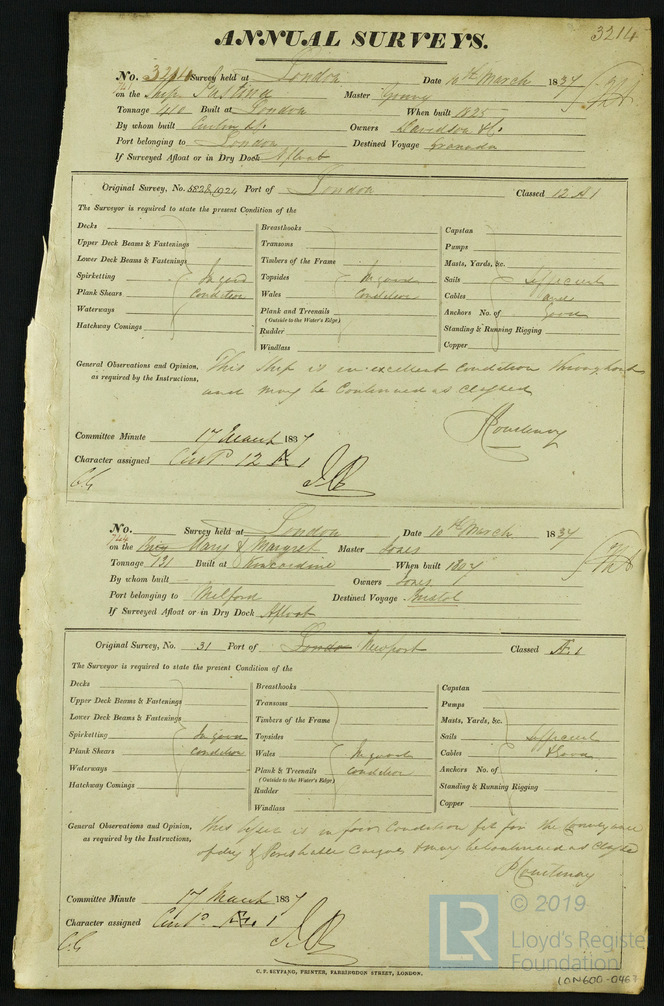 3214
ANNUAL SURVEYS.
No. 3214 Survey held at London Date 10th March 1837
on the Ship Master
Tonnage 410 Built at London When built 1825
By whom built Owners Davidson & Co.
Port belonging to London Destined Voyage Granada
If Surveyed Afloat or in Dry Dock Afloat
Original Survey, No. 5828, 1924 Port of London Classed 12 A 1
The Surveyor is required to state the present Condition of the
Decks
Upper Deck Beams & Fastenings
Lower Deck Beams & Fastenings
Spirketting In good
Plank Shears Condition
Waterways
Hatchway Comings
Breasthooks
Transoms
Timbers of the Frame
Topsides In good
Wales Condition
Plank and Treenails
(Outside to the Water's Edge)
Rudder
Windlass
Capstan
Pumps
Masts, Yards, &c.
Sails sufficient
Cables and
Anchors No. of good
Standing & Running Rigging
Copper
General Observations and Opinion, This Ship is in excellent Condition throughout
as required by the Instructions, and may be Continued as Classed
Courtenay
Committee Minute 17 March 1837
Character assigned Cont'd 12 A 1
No. Survey held at London Date 10th March 1837
744
on the Brig Mary & Margret Master Jones
Tonnage 131 Built at Kincardine When built 1807
By whom built Owners Jones
Port belonging to Milford Destined Voyage Bristol
If Surveyed Afloat or in Dry Dock Afloat
Original Survey, No. 31 Port of London Newport Classed Æ 1
The Surveyor is required to state the present Condition of the
Decks
Upper Deck Beams & Fastenings
Lower Deck Beams & Fastenings
Spirketting In good
Plank Shears condition
Waterways
Hatchway Comings
Breasthooks
Transoms
Timbers of the Frame
Topsides
Wales In good
Plank & Treenails Condition
(Outside to the Water's Edge)
Rudder
Windlass
Capstan
Pumps
Masts, Yards, &c.
Sails sufficient
Cables & Good
Anchors No. of
Standing & Running Rigging
Copper
General Observations and Opinion, This Vessel is in fair Condition fit for the Conveyance
as required by the Instructions, of dry & Perishable Cargoes & may be continued as Classed
P Courtenay
Committee Minute 17 March 1837
Character assigned Cont'd Æ 1
C. F. SEYFANG, PRINTER, FARRINGDON STREET, LONDON.
LR
© 2019
Lloyd's Register
Foundation
LON600-0467